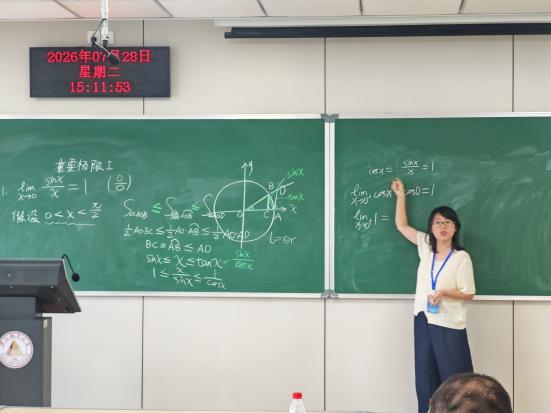 2026年07月28日
星期二
15:11:53
重要极限I
1. lim x→0 sinx/x = 1 (0/0)
假设 0<x<π/2
S△AOB ≤ S扇AOB ≤ S△AOD
1/2 AO·BC ≤ 1/2 AO·AB ≤ 1/2 AO·AD
BC ≤ AB ≤ AD
sinx ≤ x ≤ tanx
sinx/cosx
1 ≤ x/sinx ≤ 1/cosx
y
sinx
B
D
tanx
O
C
A
x
l=θr
cosx ≤ sinx/x ≤ 1
lim x→0 cosx = cos0 = 1
lim x→0 1 =